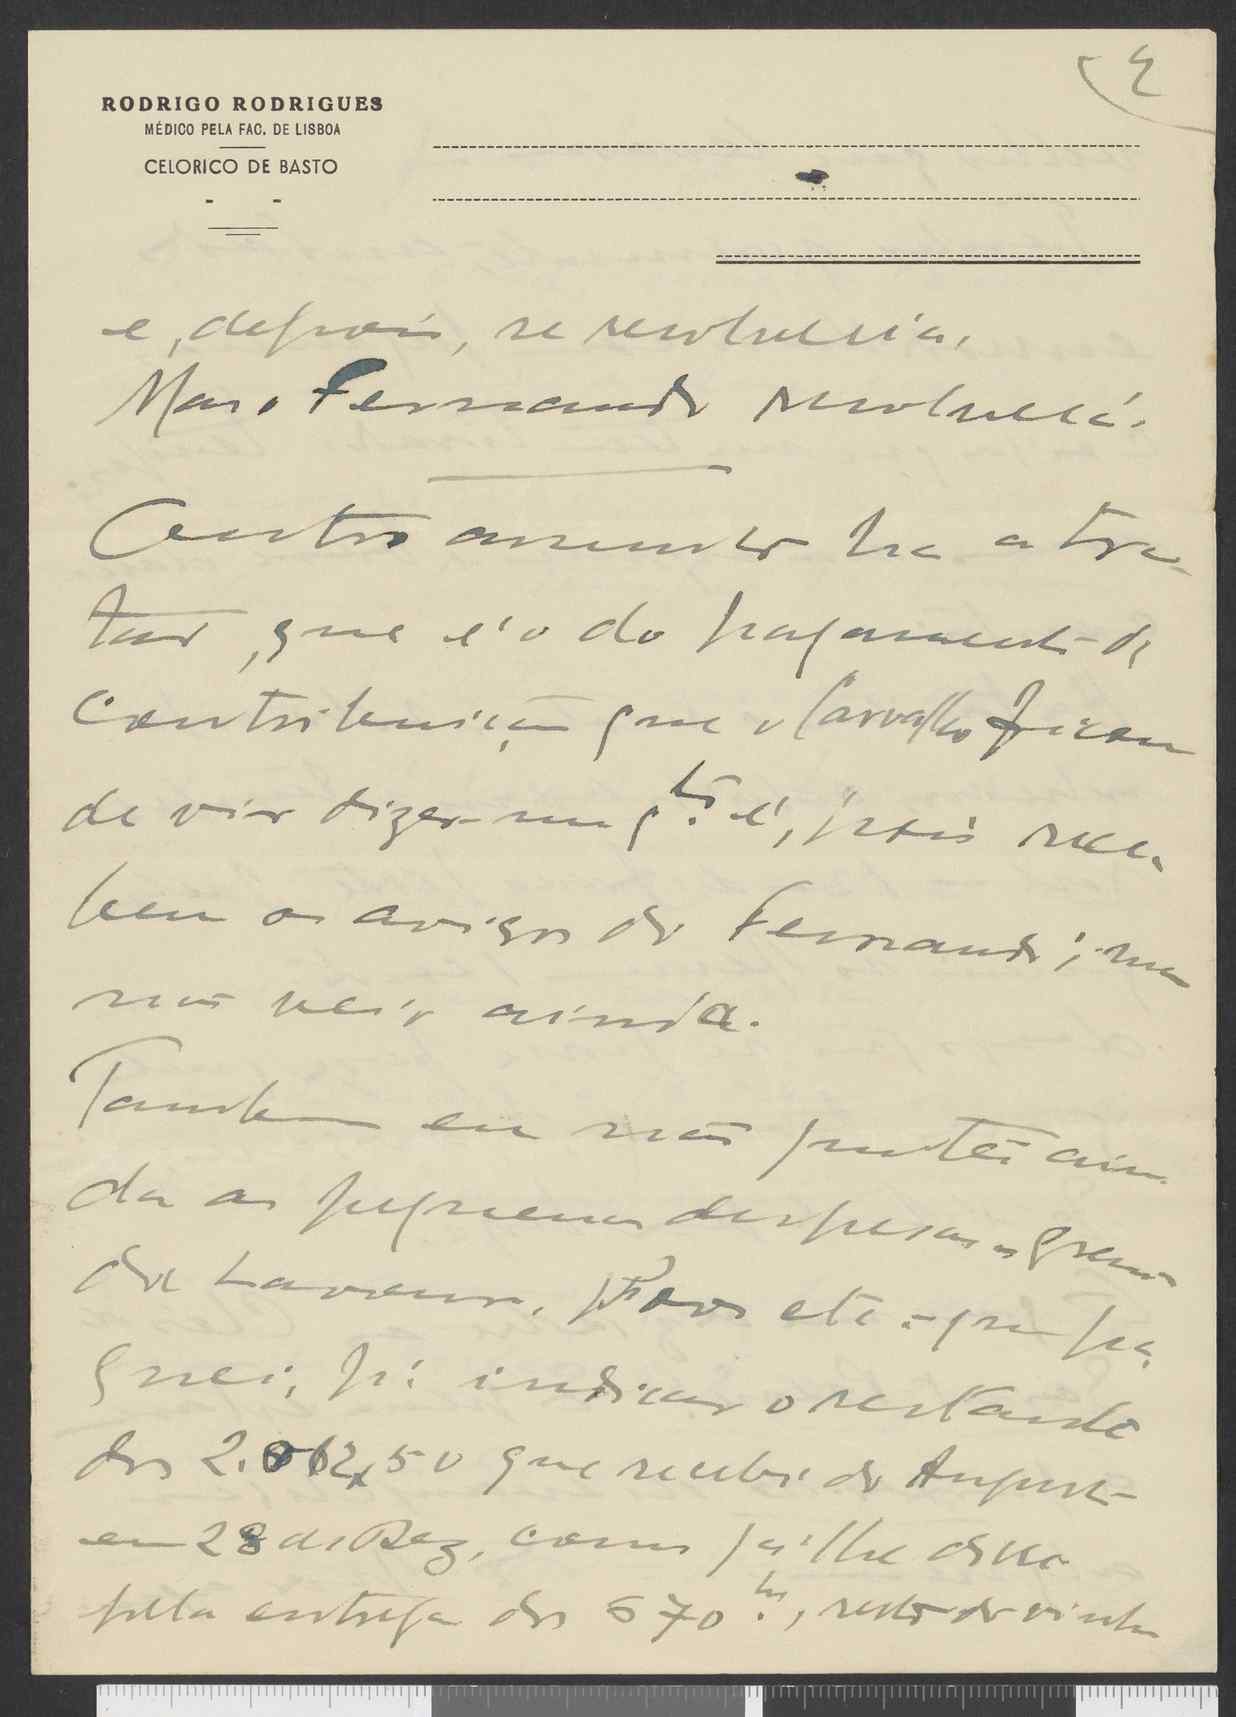 2
RODRIGO RODRIGUES
MÉDICO PELA FAC. DE LISBOA
CELORICO DE BASTO
e, depois, se resolveria.
Mas o Fernando resolverá.
Outro assunto ha a tra-
tar, que é o do pagamento da
contribuição que o Carvalho ficou
de vir dizer-me qto é, pois rece-
beu os avisos do Fernando; mas
não veio ainda.
Tambem eu não
da as pequenas despesas = Gremio
da Lavoura, Foros etc = que pa-
guei, p.a indicar o restante
dos 2.812,50 que recebi do Augusto
em 28 de Dez, como já lhe disse
pela entrega dos 670 , resto do vinho